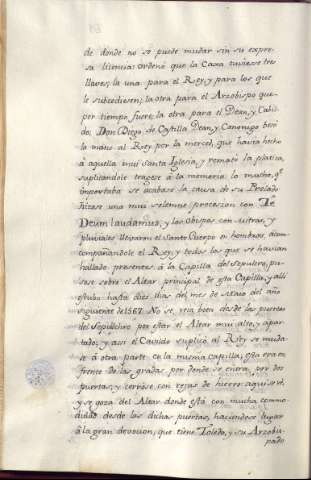 de donde no se puede mudar sin su expre-
sa licencia: ordenó que la Caxa tuviese tres
llaves; la una para el Rey, y para los que
le subcediesen; la otra para el Arzobispo que
por tiempo fuere; la otra para el Dean, y Cabil-
do; Don Diego de Castilla Dean, y Canonigo besó
la mano al Rey por la merced, que havia hecho
à aquella mui Santa Iglesia, y remató la platica,
suplicandole tragese à la memoria lo mucho, qᵉ
importaba se acabase la causa de su Prelado
hizose una mui solemne procesion con Te
Deum laudamus, y los Obispos con mitras, y
pluviales llevaron el Santo Cuerpo en hombros acom-
pañandole el Rey, y todos los que se havian
hallado presentes à la Capilla del Sepulcro, pu-
sose sobre el Altar principal de esta Capilla, y allí
estubo hasta diez dias del mes de Mayo del año
siguiente de 1567. No se veia bien desde las puertas
del Sepulchro por estar el Altar mui alto, y apar-
tado; y asi el Cavildo suplicó al Rey se muda-
se à otra parte en la misma capilla; esta era en
frente de las gradas, por donde se entra, por dos
puertas, y cerróse con rejas de hierro: aqui se vé,
y se goza del Altar donde está con mucha como-
didad desde las dichas puertas, haciendose lugar
à la gran devocion, que tiene Toledo, y su Arzobis-
pado